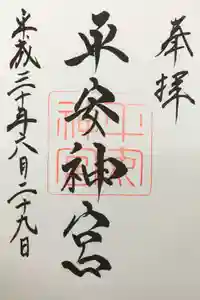 奉拝
平安神宮
平成三十年八月二十九日